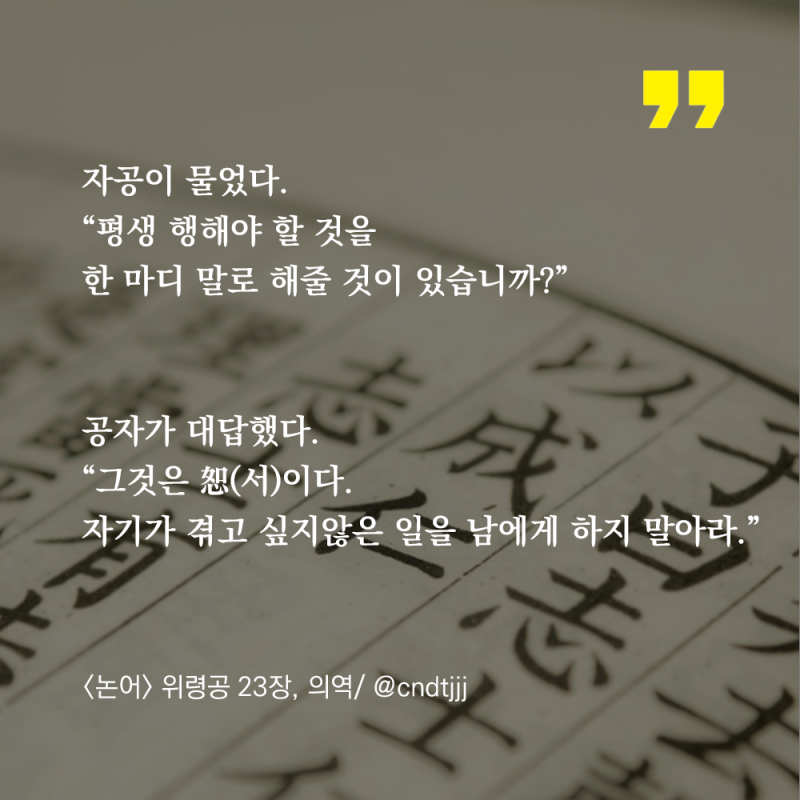 ”
자공이 물었다.
“평생 행해야 할 것을
한 마디 말로 해줄 것이 있습니까?”
공자가 대답했다.
“그것은 恕(서)이다.
자기가 겪고 싶지않은 일을 남에게 하지 말아라.”
<논어> 위령공 23장, 의역/ @cndtjjj
子曰志士仁
以成仁
志
理